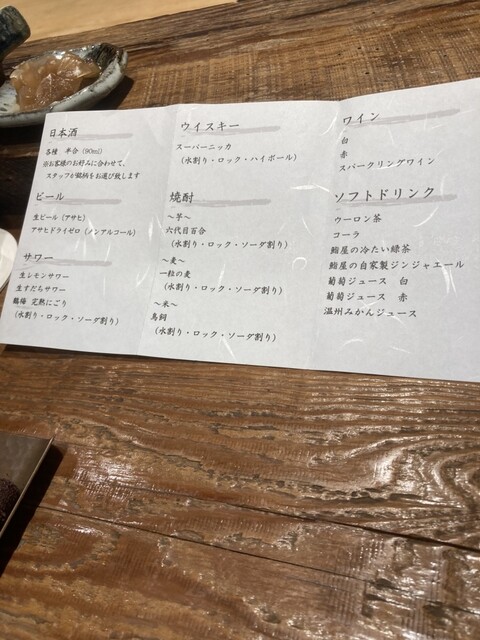 日本酒
各種 半合 (90ml)
※お客様のお好みに合わせて、
スタッフが銘柄をお選び致します
ビール
生ビール (アサヒ)
アサヒドライゼロ (ノンアルコール)
サワー
生レモンサワー
生すだちサワー
鶴梅 完熟にごり
(水割り・ロック・ソーダ割り)
ウイスキー
スーパーニッカ
(水割り・ロック・ハイボール)
焼酎
～芋～
六代目百合
(水割り・ロック・ソーダ割り)
～麦～
一粒の麦
(水割り・ロック・ソーダ割り)
～米～
鳥飼
(水割り・ロック・ソーダ割り)
ワイン
白
赤
スパークリングワイン
ソフトドリンク
ウーロン茶
コーラ
鮨屋の冷たい緑茶
鮨屋の自家製ジンジャエール
葡萄ジュース 白
葡萄ジュース 赤
温州みかんジュース